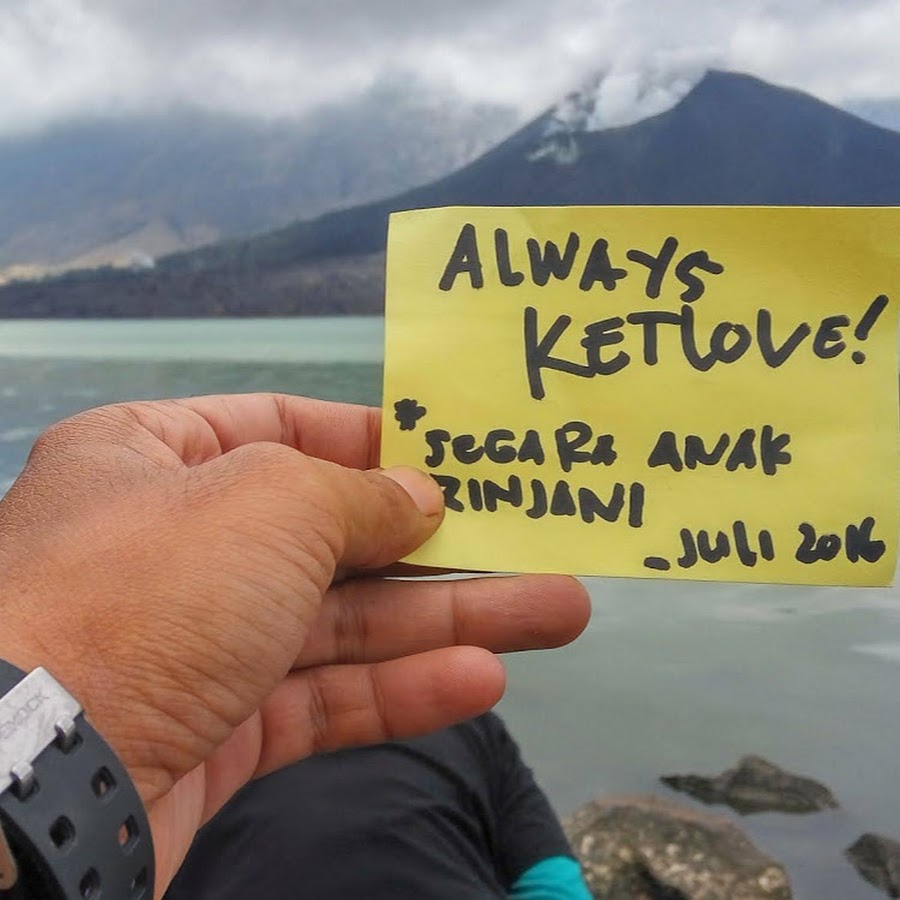 ALWAYS
KETLOVE!
*SEGARA ANAK
RINJANI
- JULI 2016